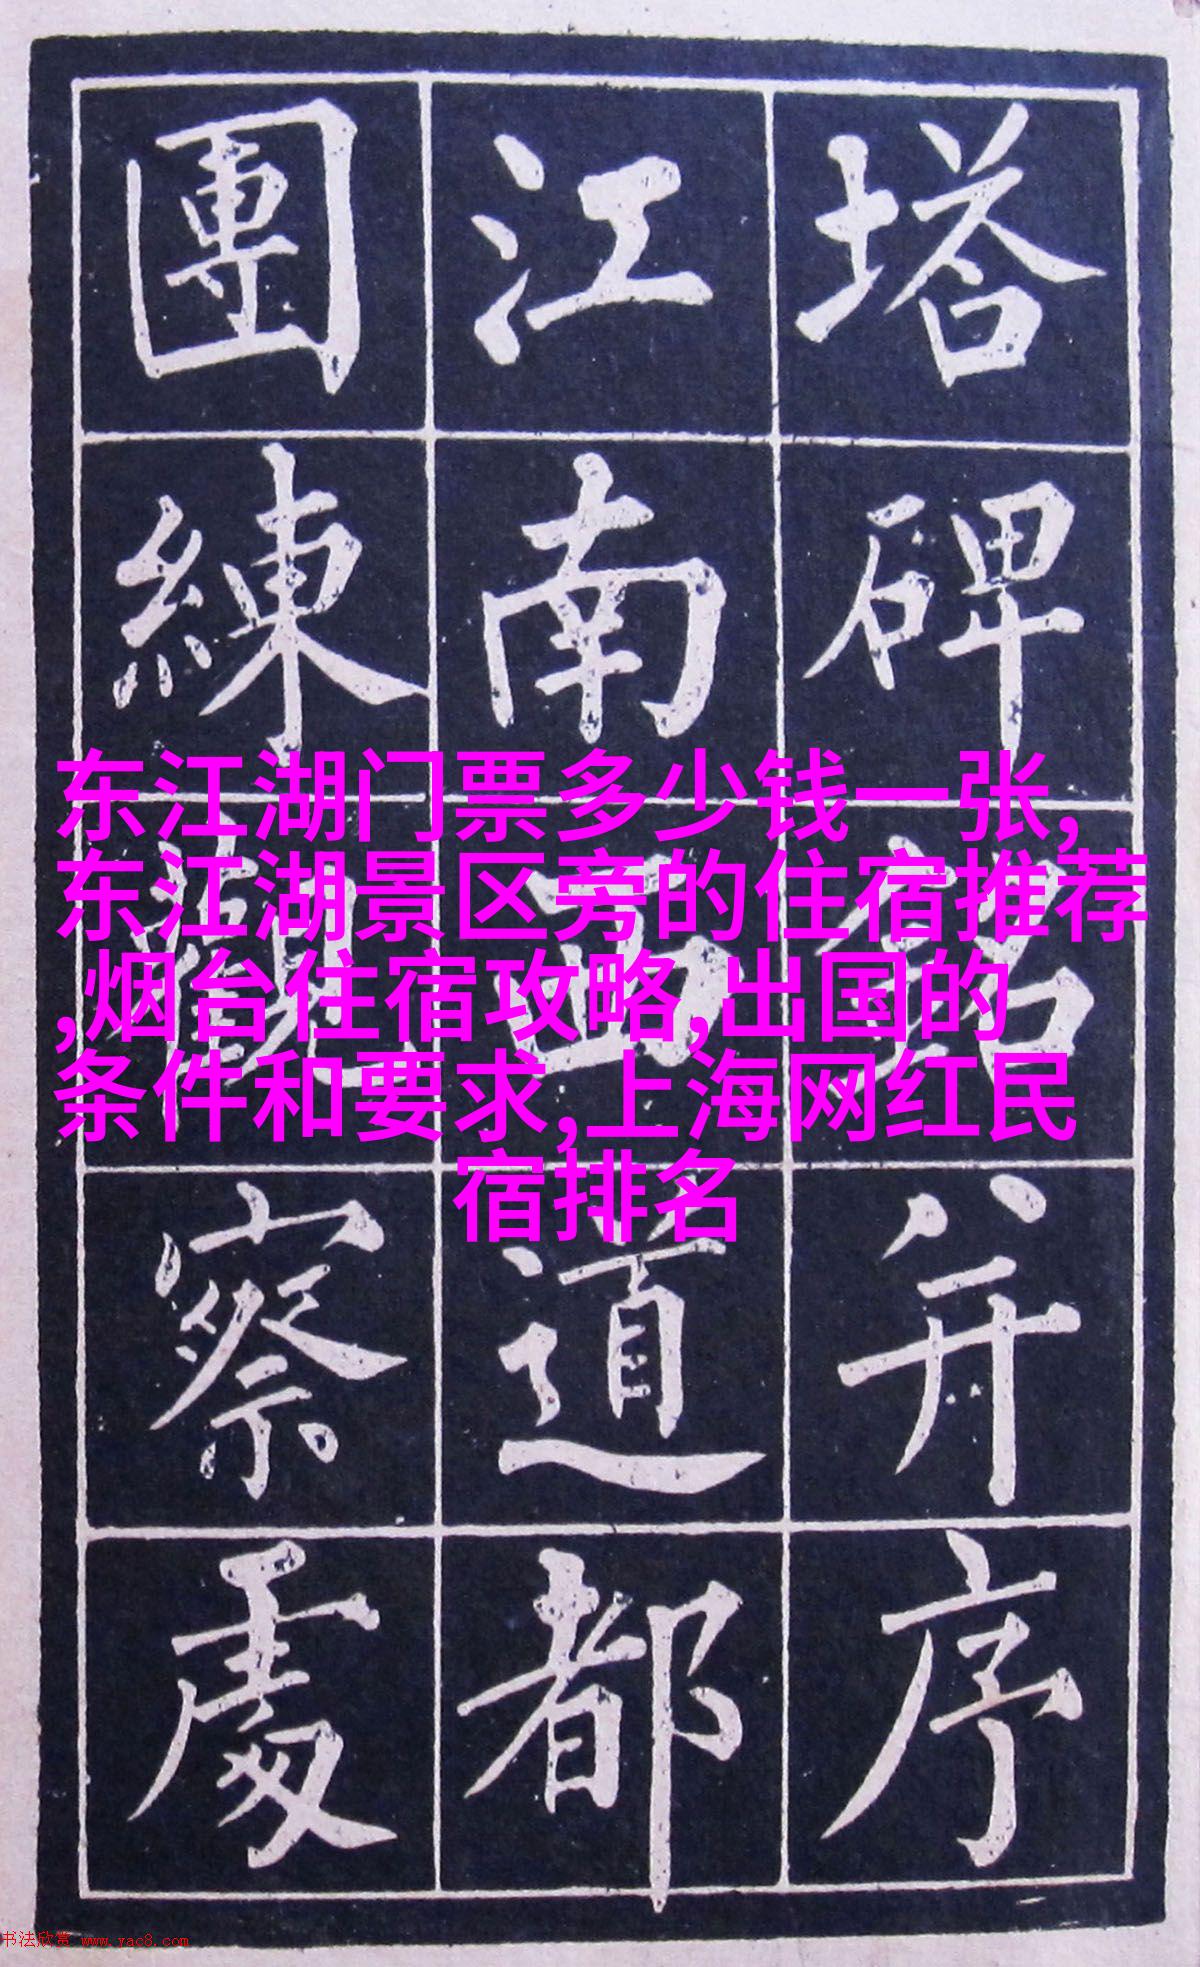 塔碑銘并序
江南西道都
團練觀察處
东江湖门票多少钱一张,
东江湖景区旁的住宿推荐
,烟台住宿攻略,出国的
条件和要求,上海网红民
宿排名
书法欣赏 www.yac8.com